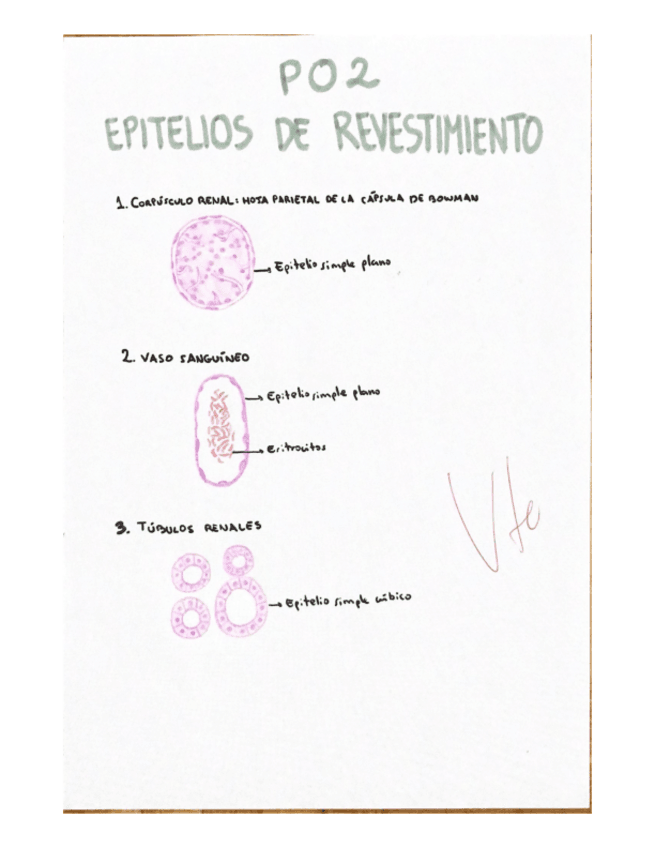 PO2
EPITELIOS DE REVESTIMIENTO
1. CORPÚSCULO RENAL: HOJA PARIETAL DE LA CÁPSULA DE BOWMAN
Epitelio simple plano
2. VASO SANGUÍNEO
Epitelio simple plano
Eritrocitos
3. TÚBULOS RENALES
Epitelio simple cúbico